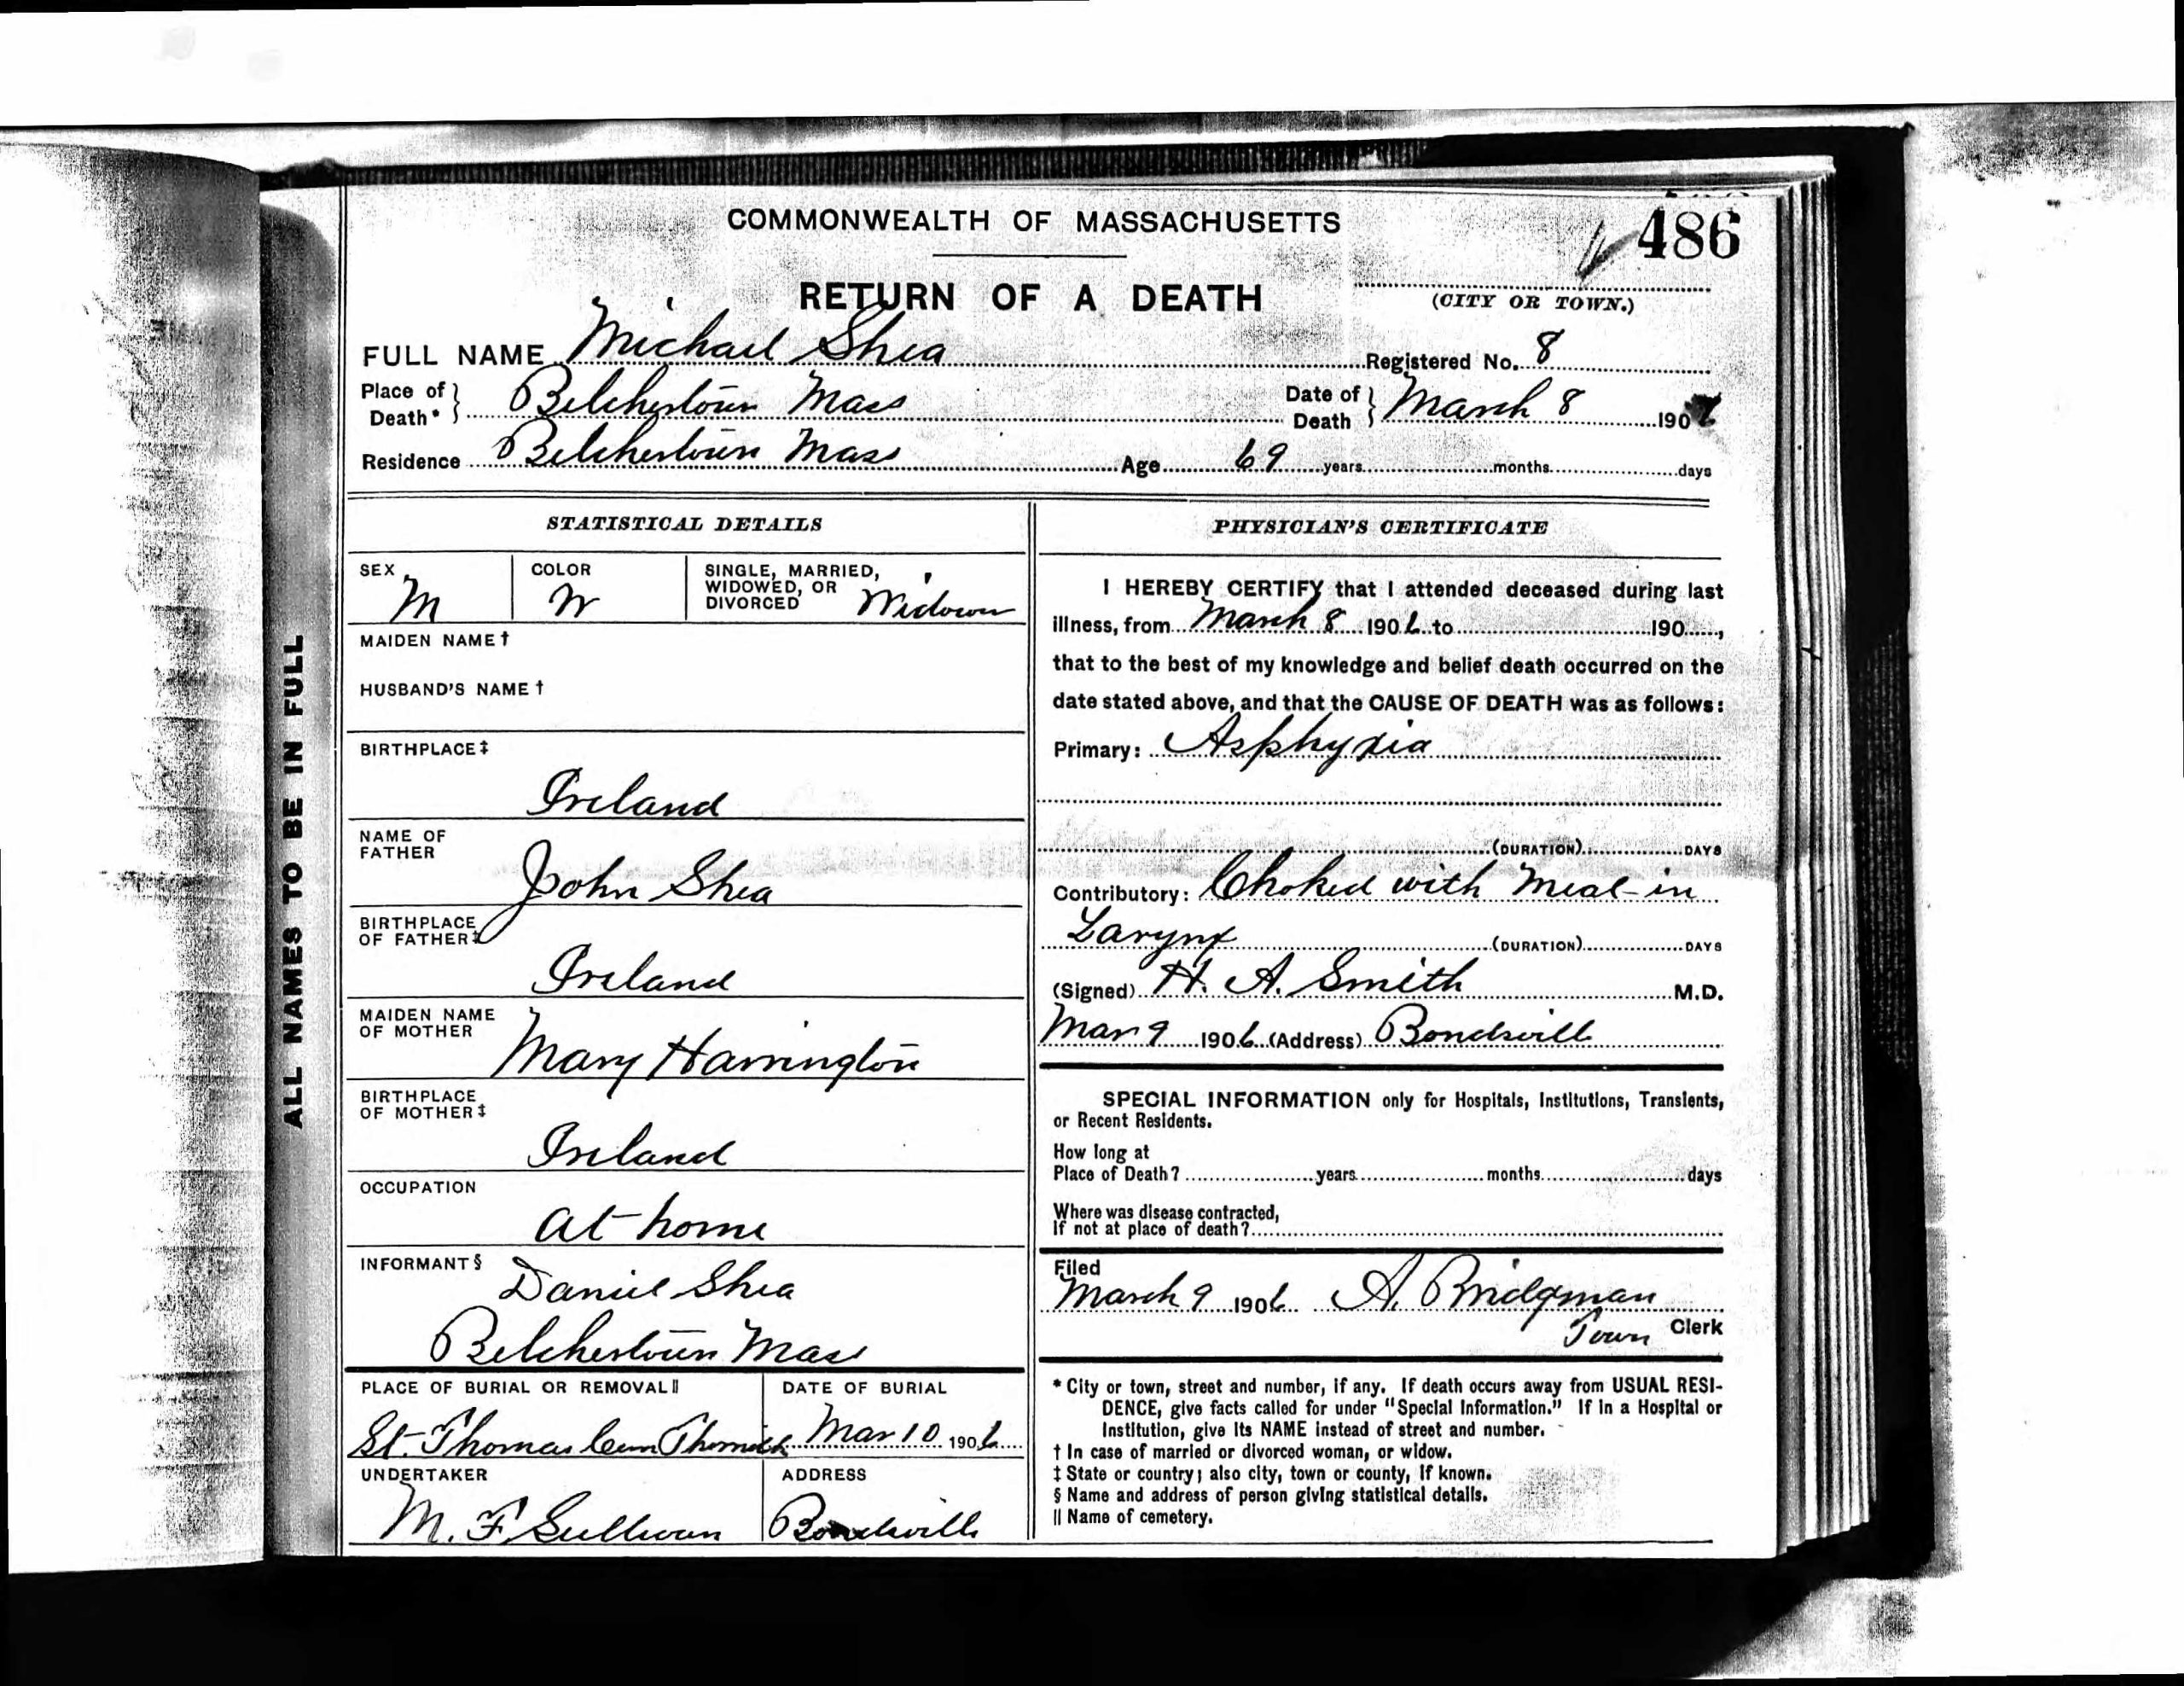 486
COMMONWEALTH OF MASSACHUSETTS
RETURN OF A DEATH
(CITY OR TOWN.)
FULL NAME Michael Shea Registered No. 8
Place of Death* } Belchertown Mass Date of Death } March 8 190
Residence Belchertown Mass Age 69 years months days
ALL NAMES TO BE IN FULL
STATISTICAL DETAILS
SEX M COLOR W SINGLE, MARRIED, WIDOWED, OR DIVORCED Widower
MAIDEN NAME †
HUSBAND'S NAME †
BIRTHPLACE ‡
Ireland
NAME OF FATHER
John Shea
BIRTHPLACE OF FATHER ‡
Ireland
MAIDEN NAME OF MOTHER
Mary Harrington
BIRTHPLACE OF MOTHER ‡
Ireland
OCCUPATION
At home
INFORMANT §
Daniel Shea
Belchertown Mass
PLACE OF BURIAL OR REMOVAL ‖ DATE OF BURIAL
St. Thomas Cem Mar 10 1906
UNDERTAKER ADDRESS
M. F. Sullivan Bondsville
PHYSICIAN'S CERTIFICATE
I HEREBY CERTIFY that I attended deceased during last
illness, from March 8 1906 to 190 ,
that to the best of my knowledge and belief death occurred on the
date stated above, and that the CAUSE OF DEATH was as follows:
Primary: Asphyxia
(DURATION) DAYS
Contributory: Choked with Meat in
Larynx (DURATION) DAYS
(Signed) H. A. Smith M.D.
Mar 9 1906 (Address) Bondsville
SPECIAL INFORMATION only for Hospitals, Institutions, Transients,
or Recent Residents.
How long at
Place of Death? years months days
Where was disease contracted,
If not at place of death?
Filed
March 9 1906 A. Bridgman
Town Clerk
* City or town, street and number, if any. If death occurs away from USUAL RESI-
DENCE, give facts called for under "Special Information." If in a Hospital or
Institution, give its NAME instead of street and number.
† In case of married or divorced woman, or widow.
‡ State or country; also city, town or county, if known.
§ Name and address of person giving statistical details.
‖ Name of cemetery.